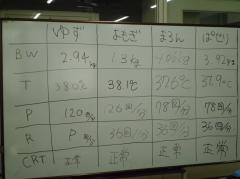 ゆず よもぎ まろん ぱせり
BW 2.94kg 1.3kg 4.06kg 3.92kg
T 38.0℃ 38.1℃ 37.6℃ 37.9℃
P 120回/分 126回/分 78回/分 78回/分
R P 回/分 36回/分 36回/分 36回/分
CRT 正常 正常 正常 正常